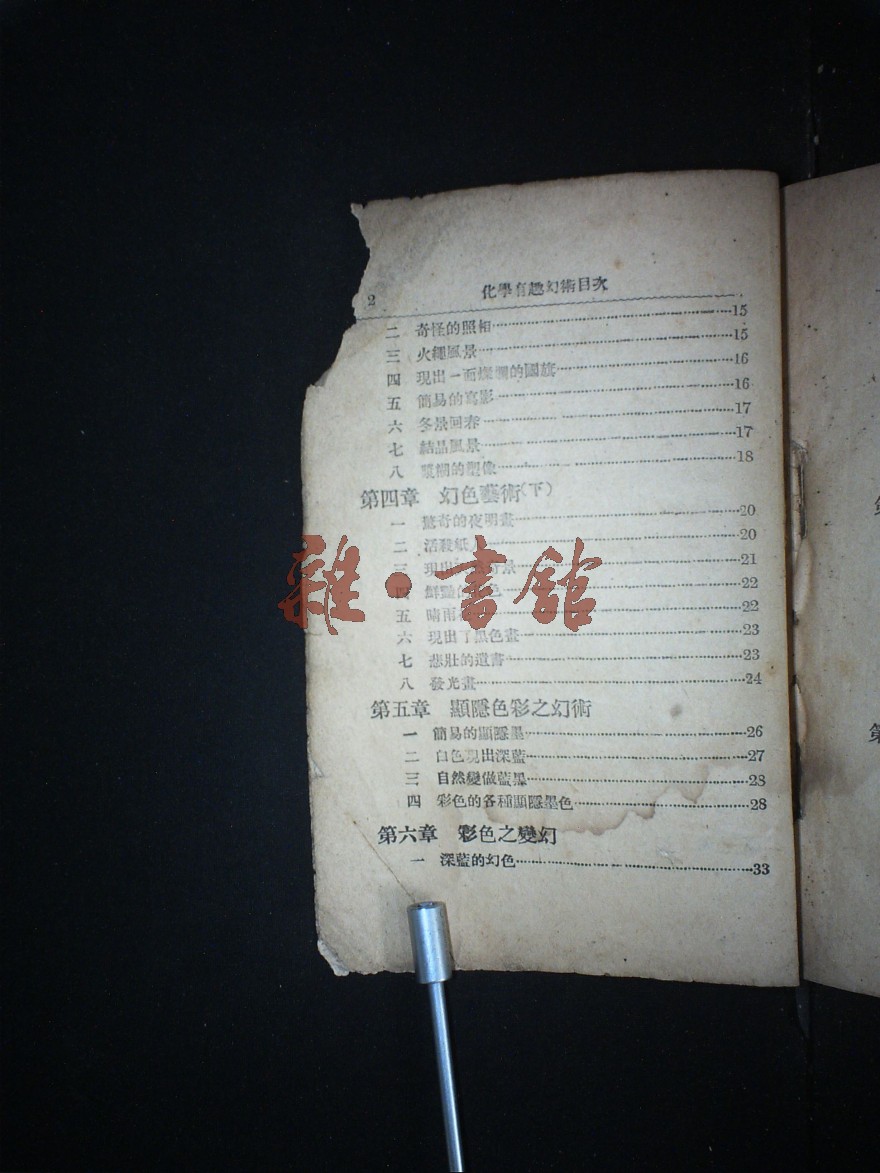 2 化學有趣幻術目次
二 奇怪的照相……15
三 火繩風景……15
四 現出一面燦爛的國旗……16
五 簡易的寫影……16
六 冬景回春……17
七 結晶風景……17
八 的塑像……18
第四章 幻色藝術(下)
一 驚奇的夜明畫……20
二 活殺紙……20
三 現出……景……21
四 鮮豔的色……22
五 晴雨……22
六 現出了黑色畫……23
七 悲壯的遺書……23
八 發光畫……24
第五章 顯隱色彩之幻術
一 簡易的顯隱墨……26
二 白色現出深藍……27
三 自然變做藍墨……28
四 彩色的各種顯隱墨色……28
第六章 彩色之變幻
一 深藍的幻色……33
雜·書館